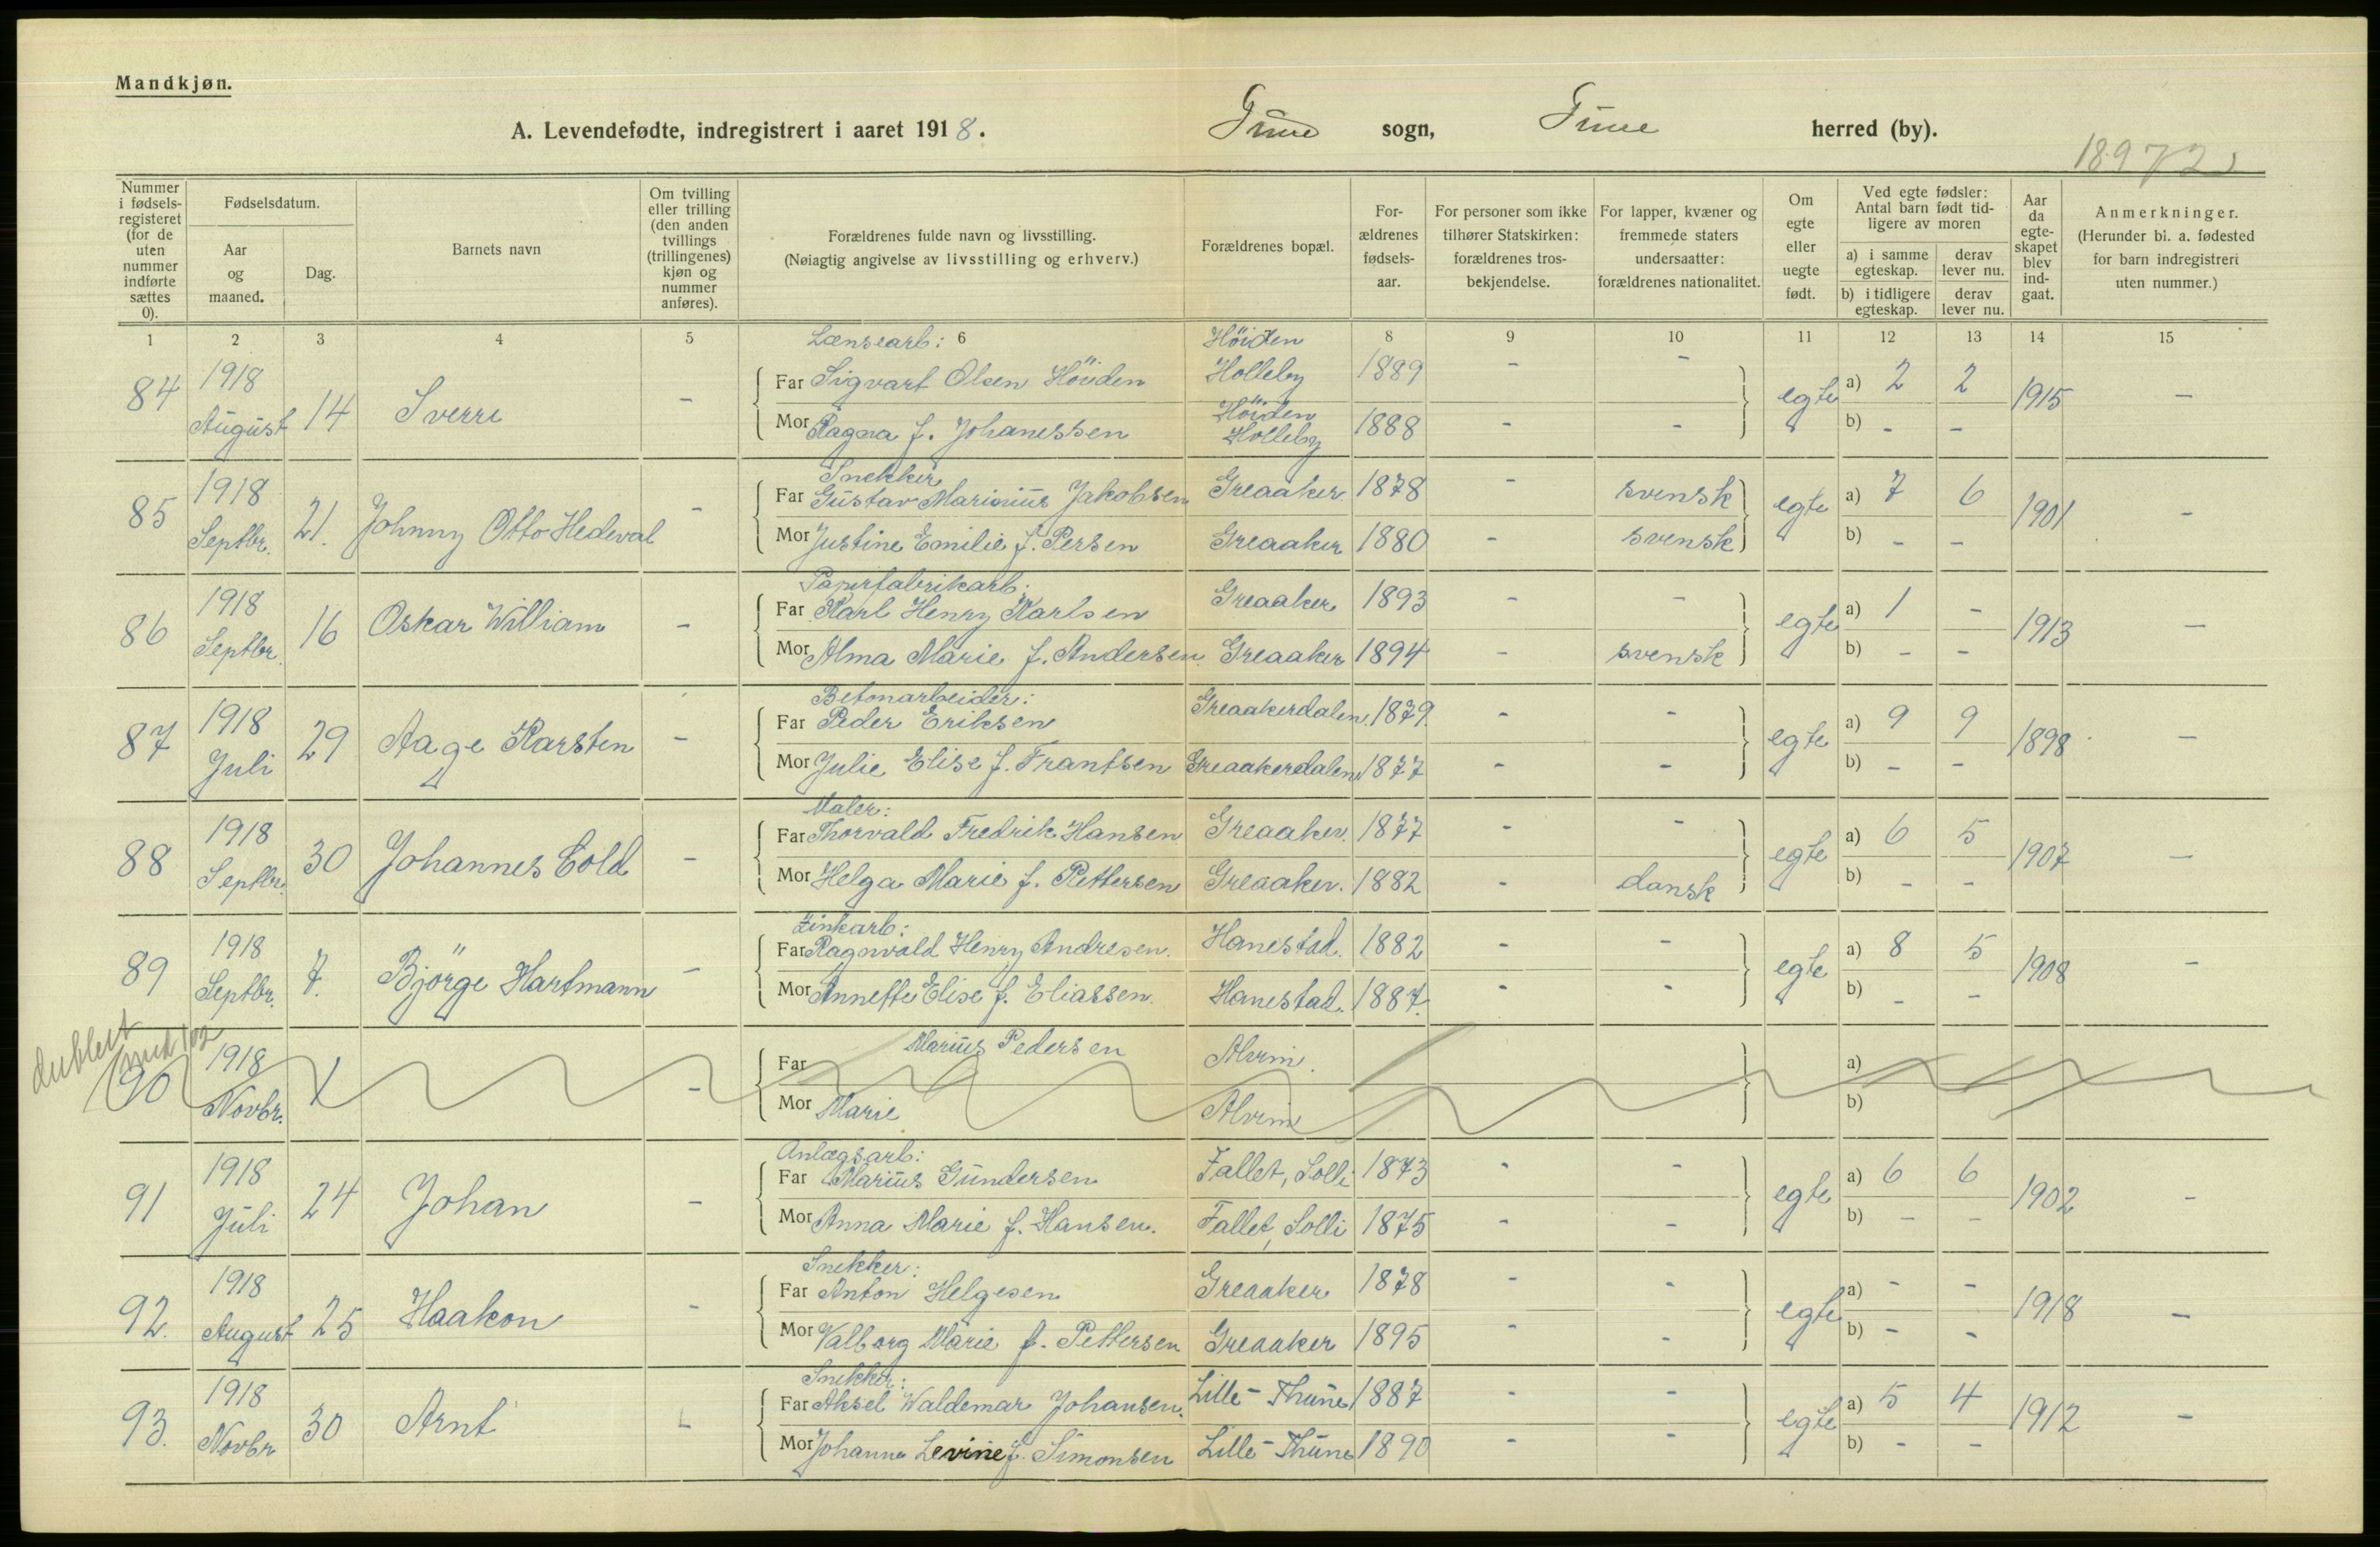 Mandkjøn.
A. Levendefødte, indregistrert i aaret 1918. Tune sogn, Tune herred (by).
Nummer i fødsels-registeret (for de uten nummer indførte sættes 0).
Fødselsdatum.
Aar og maaned.
Dag.
Barnets navn
Om tvilling eller trilling (den anden tvillings (trillingenes) kjøn og nummer anføres).
Forældrenes fulde navn og livsstilling.
(Nøiagtig angivelse av livsstilling og erhverv.)
Forældrenes bopæl.
For-ældrenes fødsels-aar.
For personer som ikke tilhører Statskirken: forældrenes tros-bekjendelse.
For lapper, kvæner og fremmede staters undersaatter: forældrenes nationalitet.
Om egte eller uegte født.
Ved egte fødsler: Antal barn født tid-ligere av moren
a) i samme egteskap. derav lever nu.
b) i tidligere egteskap. derav lever nu.
Aar da egte-skapet blev ind-gaat.
Anmerkninger.
(Herunder bi. a. fødested for barn indregistrert uten nummer.)
1 2 3 4 5 6 8 9 10 11 12 13 14 15
Lænsearb: Höiden
84 1918 August 14 Sverre - Far Sigvart Olsen Höiden Holleby 1889 - - egte a) 2 2 1915 -
Mor Ragna f. Johanessen Höiden Holleby 1888 - - b) - -
Snekker
85 1918 Septbr. 21. Johnny Otto Hedeval - Far Gustav Marinius Jakobsen Greaaker 1878 - svensk egte a) 7 6 1901 -
Mor Justine Emilie f. Persen Greaaker 1880 - svensk b) - -
Papirfabrikarb.
86 1918 Septbr. 16 Oskar William - Far Karl Henry Karlsen Greaaker 1893 - - egte a) 1 - 1913 -
Mor Alma Marie f. Andersen Greaaker 1894 - svensk b) - -
Betonarbeider:
87 1918 Juli 29 Aage Karsten - Far Peder Eriksen Greaakerdalen 1879. - - egte a) 9 9 1898 -
Mor Julie Elise f. Frantsen Greaakerdalen 1877 - - b) - -
Maler:
88 1918 Septbr. 30 Johannes Cold - Far Thorvald Fredrik Hansen Greaaker. 1877 - - egte a) 6 5 1907 -
Mor Helga Marie f. Pettersen Greaaker. 1882 - dansk b) - -
Zinkarb:
89 1918 Septbr. 7. Björge Hartmann - Far Ragnvald Henry Andresen. Hanestad. 1882 - - egte a) 8 5 1908 -
Mor Annette Elise f. Eliassen. Hanestad. 1887. - - b) - -
dublett med 102
90 1918 Novbr. 1 - Far Marius Pedersen Alvim. a)
Mor Marie Alvim b)
Anlægsarb:
91 1918 Juli 24 Johan - Far Marius Gundersen Fallet, Solli 1873 - - egte a) 6 6 1902 -
Mor Anna Marie f. Hansen. Fallet, Solli 1875 - - b) - -
Snekker:
92. 1918 August 25 Haakon - Far Anton Helgesen Greaaker 1878 - - egte a) - - 1918 -
Mor Valborg Marie f. Pettersen Greaaker 1895 - - b) - -
Snekker:
93. 1918 Novbr 30 Arnt - Far Aksel Waldemar Johansen. Lille-Thune 1887 - - egte a) 5 4 1912 -
Mor Johanne Levine f. Simonsen Lille-Thune 1890 - - b) - -